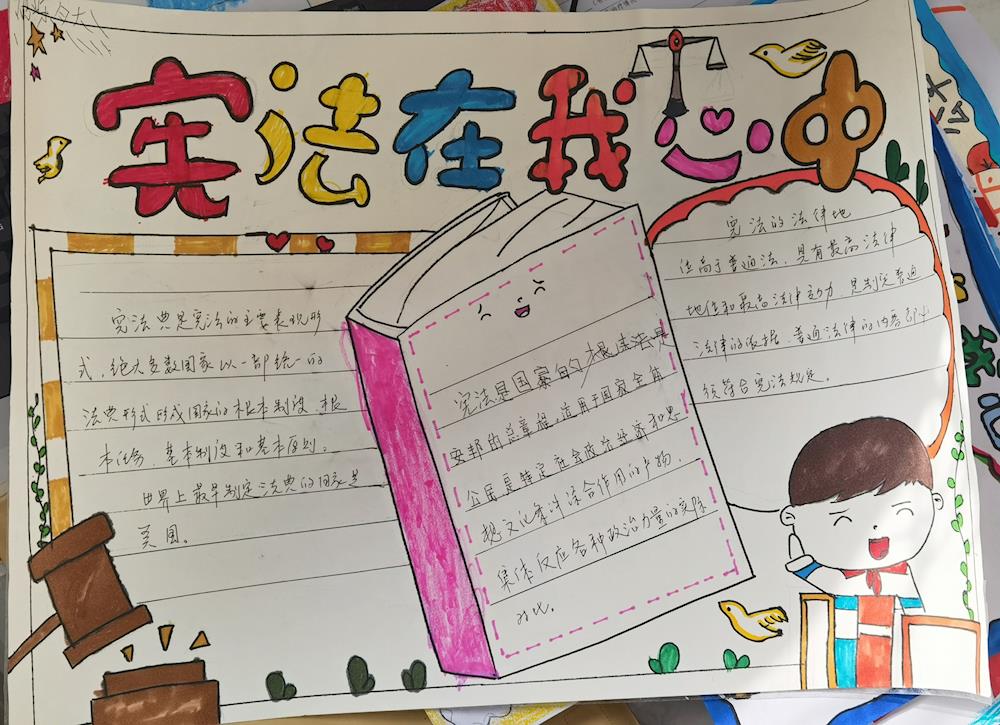 宪法在我心中
宪法典是宪法的主要表现形
式,绝大多数国家以一部统一的
法典形式形成国家的根本制度、根
本任务、基本制度和基本原则。
世界上最早制定法典的国家是
美国。
宪法是国家的根本法是
安邦的总章程,适用于国家全体
公民是特定社会政治经济和思
想文化条件综合作用的产物,
集体反应各种政治力量的实际
对比。
宪法的法律地
位高于普通法,具有最高法律
地位和最高法律效力,是制定普通
法律的依据,普通法律的内容都必
须符合宪法规定。